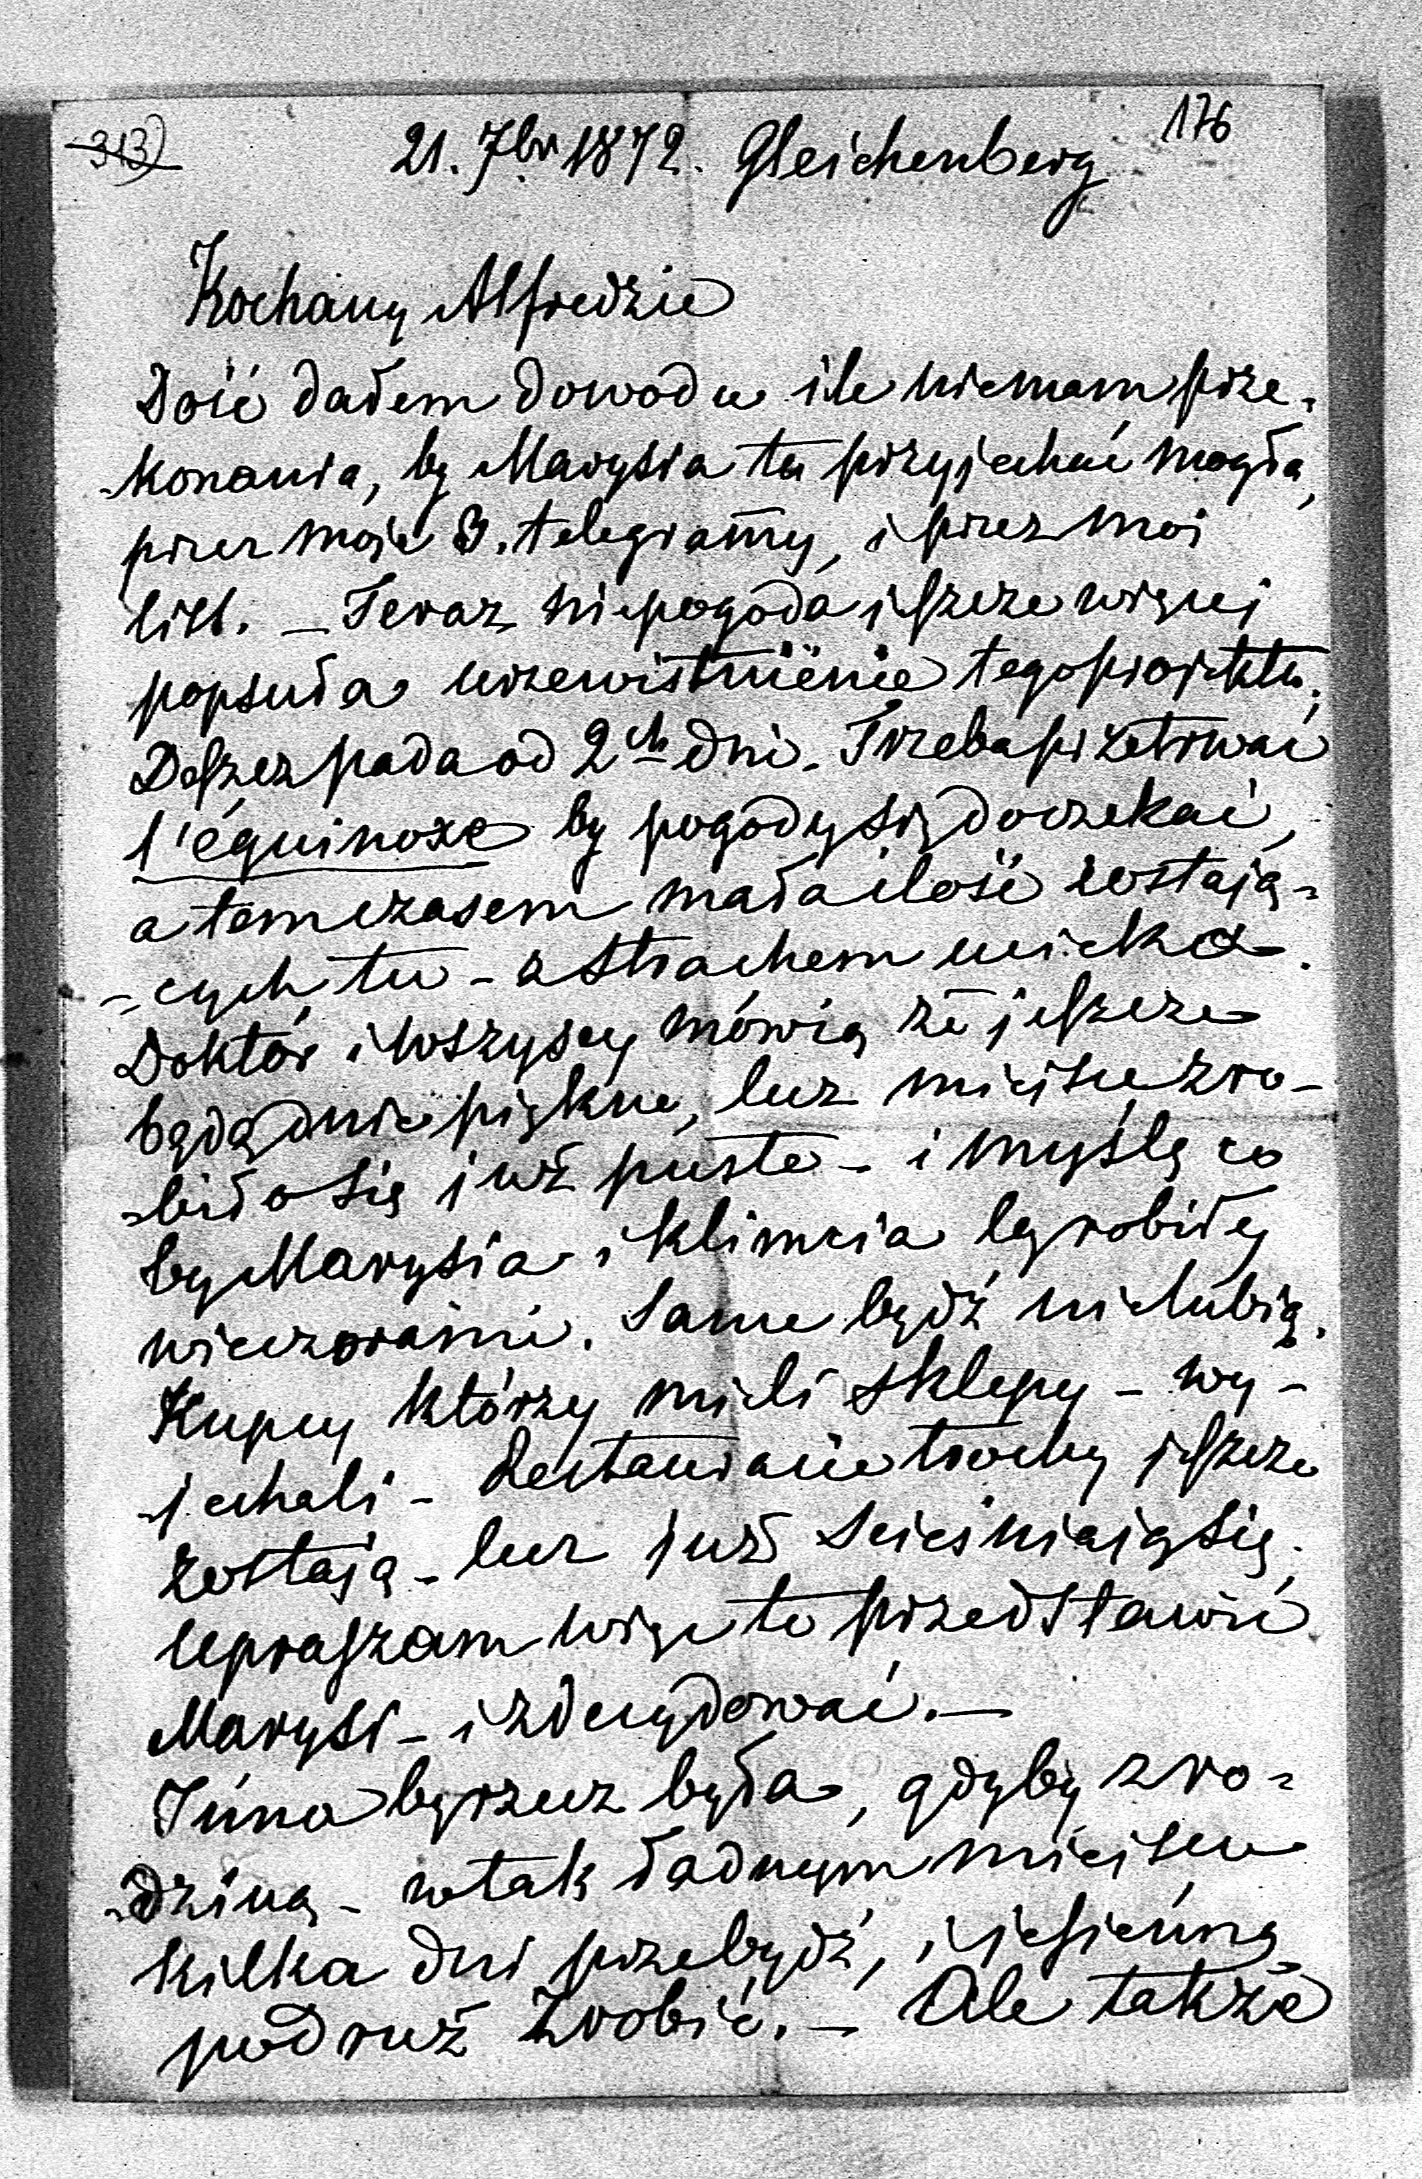 313) 176
21. 7br 1872. Gleichenberg
Kochany Alfredzie
Dość dałem dowodu ile niemam prze-
-konania, by Marysia tu przyjechać mogła,
przez moje 3. telegramy, i przez moi
list. _ Teraz niepogoda jeszcze więcej
popsuła urzewistnienie tego projektu.
Deszcz pada od 2ch dni. Trzeba przetrwać
l'équinoxe by pogody się doczekać,
a tem czasem mała ilość zostają-
-cych tu - z strachem ucieka.
Doktór i wszyscy mówią że jeszcze
będą dnie piękne, lecz miejsce zro-
-biło się już puste - i myślę co
by Marysia i Klimcia by robiły
wieczorami. Same bydź nielubią.
Kupcy którzy mieli sklepy - wy-
-jechali - Restauracie trochy jeszcze
zostają - lecz już ścieśniają się.
Upraszam więc to przedstawić
Marysi - i zdecydować. _
Inna by rzecz była, gdyby z ro-
-dziną - w tak ładnym miejscu
kilka dni przebydź, i jesienną
podruż zrobić. _ Ale także